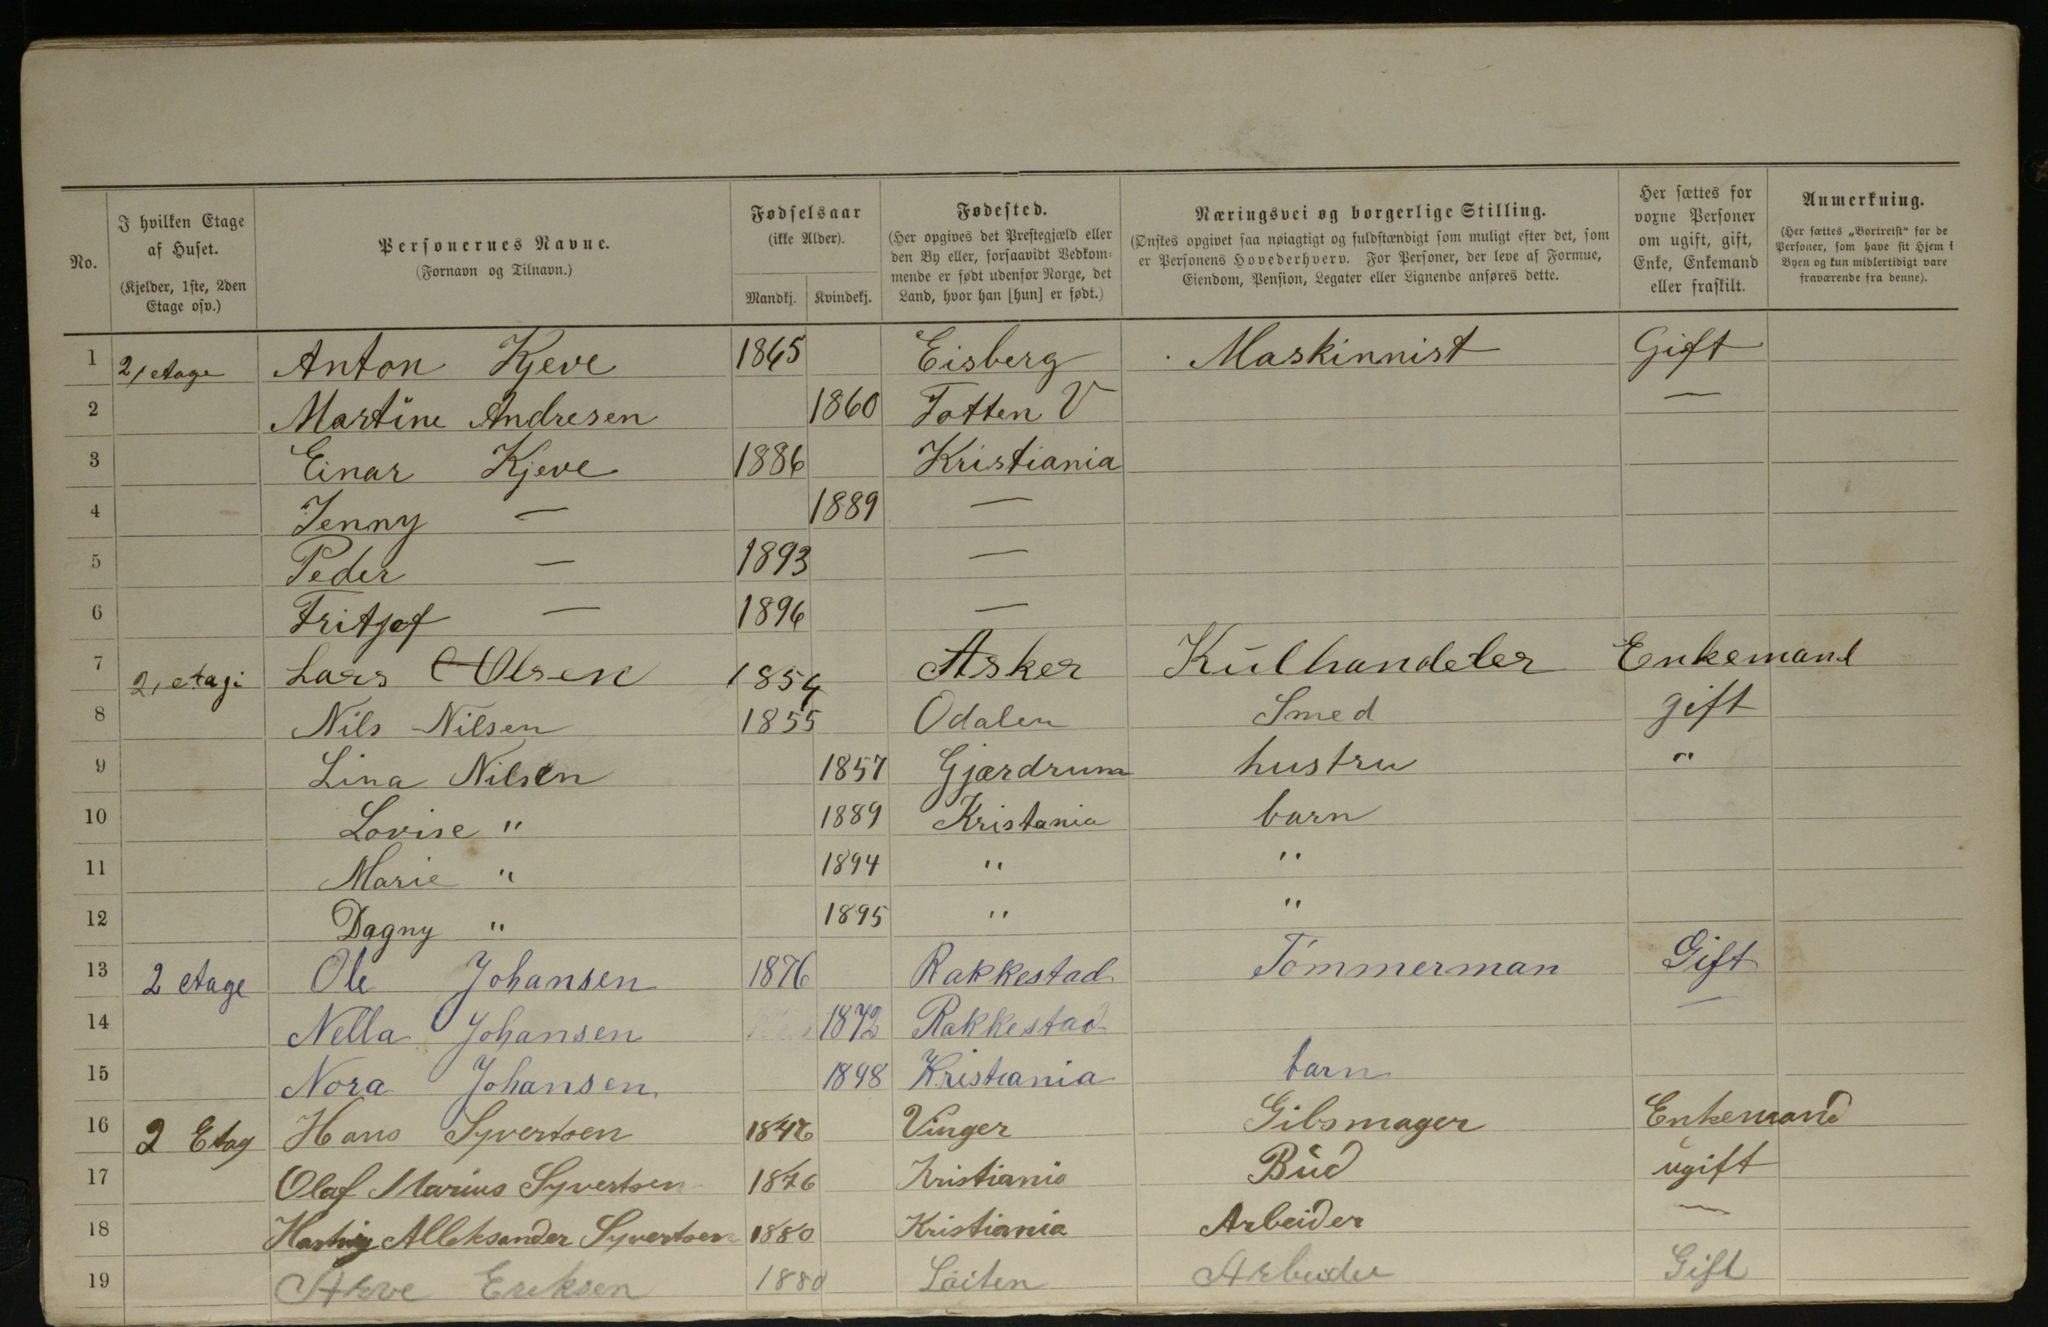 No. | I hvilken Etage af Huset. (Kjelder, 1ste, 2den Etage osv.) | Personernes Navne. (Fornavn og Tilnavn.) | Fødselsaar (ikke Alder). Mandkj. | Kvindekj. | Fødested. (Her opgives det Prestegjæld eller den By eller, forsaavidt Vedkommende er født udenfor Norge, det Land, hvor han [hun] er født.) | Næringsvei og borgerlige Stilling. (Ønskes opgivet saa nøiagtigt og fuldstændigt som muligt efter det, som er Personens Hovederhverv. For Personer, der leve af Formue, Eiendom, Pension, Legater eller Lignende anføres dette. | Her sættes for voxne Personer om ugift, gift, Enke, Enkemand eller fraskilt. | Anmerkning. (Her sættes „Bortreist" for de Personer, som have sit Hjem i Byen og kun midlertidigt vare fraværende fra denne).
1 2, etage Anton Kjeve 1865 Eisberg Maskinnist Gift
2 Martine Andresen 1860 Totten V —
3 Einar Kjeve 1886 Kristiania
4 Jenny — 1889 —
5 Peder — 1893 —
6 Fritjof — 1896 —
7 2, etagi Lars Olsen 1854 Asker Kulhandeler Enkemand
8 Nils Nilsen 1855 Odalen Smed gift
9 Lina Nilsen 1857 Gjærdrum hustru "
10 Lovise " 1889 Kristania barn
11 Marie " 1894 " "
12 Dagny " 1895 " "
13 2 etage Ole Johansen 1876 Rakkestad Tømmerman Gift
14 Nella Johansen 1872 Rakkestad —
15 Nora Johansen 1898 Kristiania barn
16 2 Etag Hans Syvertsen 1846 Vinger Gibsmager Enkemand
17 Olaf Marius Syvertsen 1876 Kristiania Bud ugift
18 Hartvig Alleksander Syvertsen 1880 Kristiania Arbeider —
19 Arve Eriksen 1880 Løiten Arbeider Gift